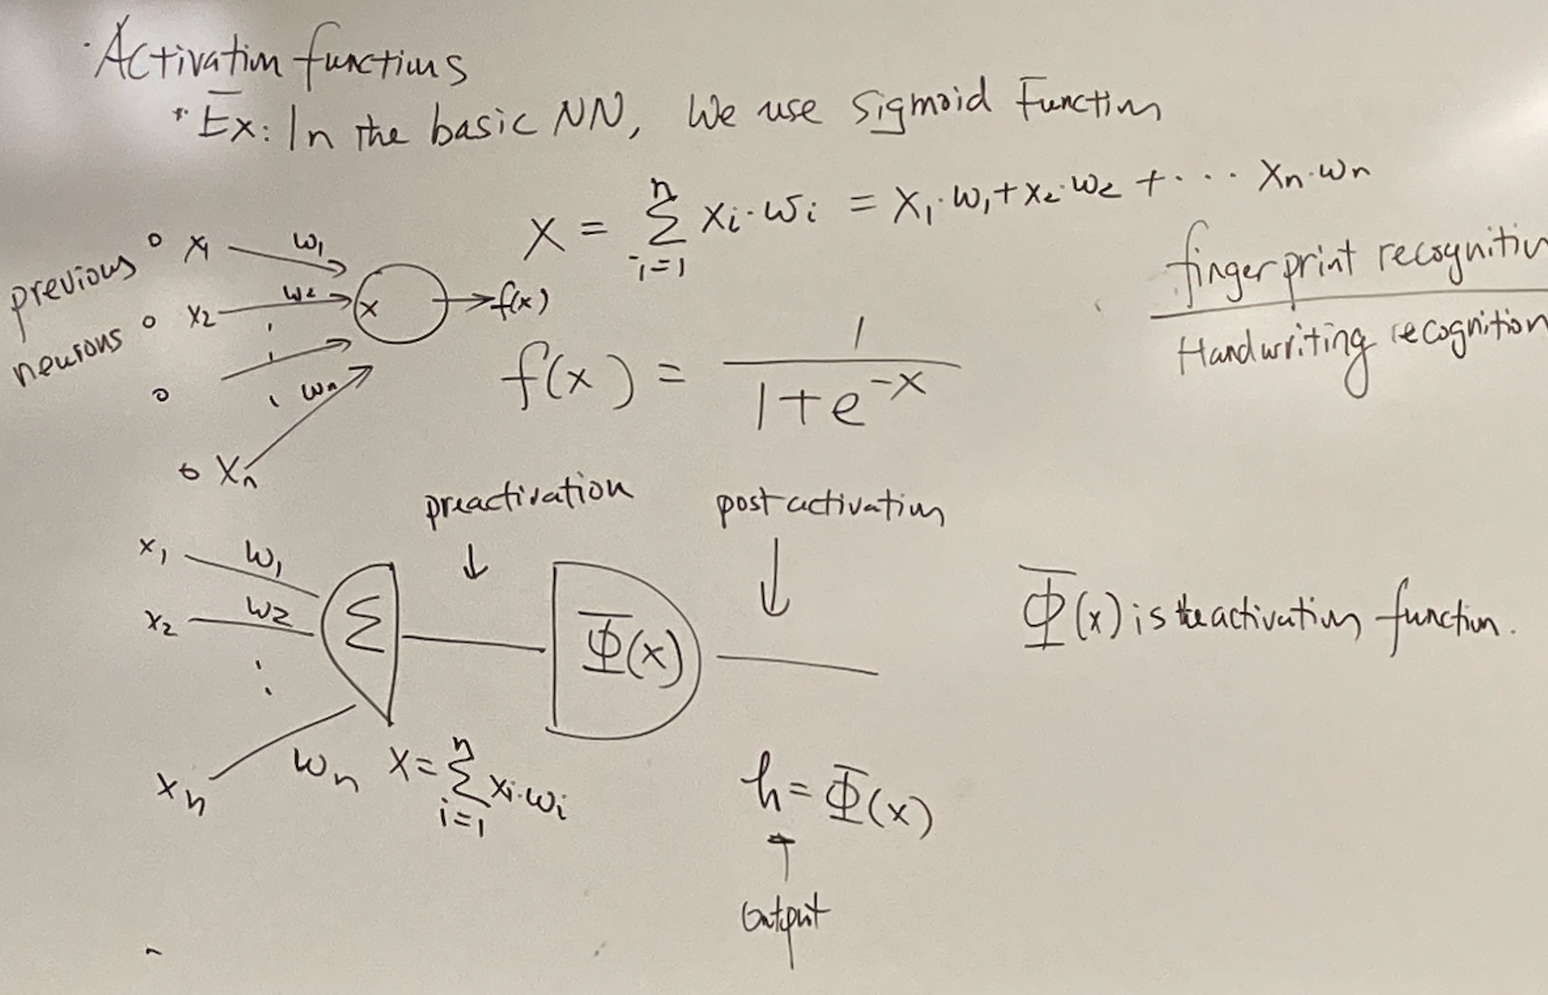 · Activation functions
· Ex: In the basic NN, We use Sigmoid Function
X = Σ_{i=1}^{n} xi·wi = x₁·w₁ + x₂·w₂ + ··· xn·wn
previous
neurons
x₁ w₁
x₂ w₂
wn
xn
x → f(x)
f(x) = 1 / (1+e^{-x})
fingerprint recognition
Handwriting recognition
preactivation
post activation
x₁ w₁
x₂ w₂
xn wn
Σ
Φ(x)
X = Σ_{i=1}^{n} xi·wi
h = Φ(x)
output
Φ(x) is the activation function.